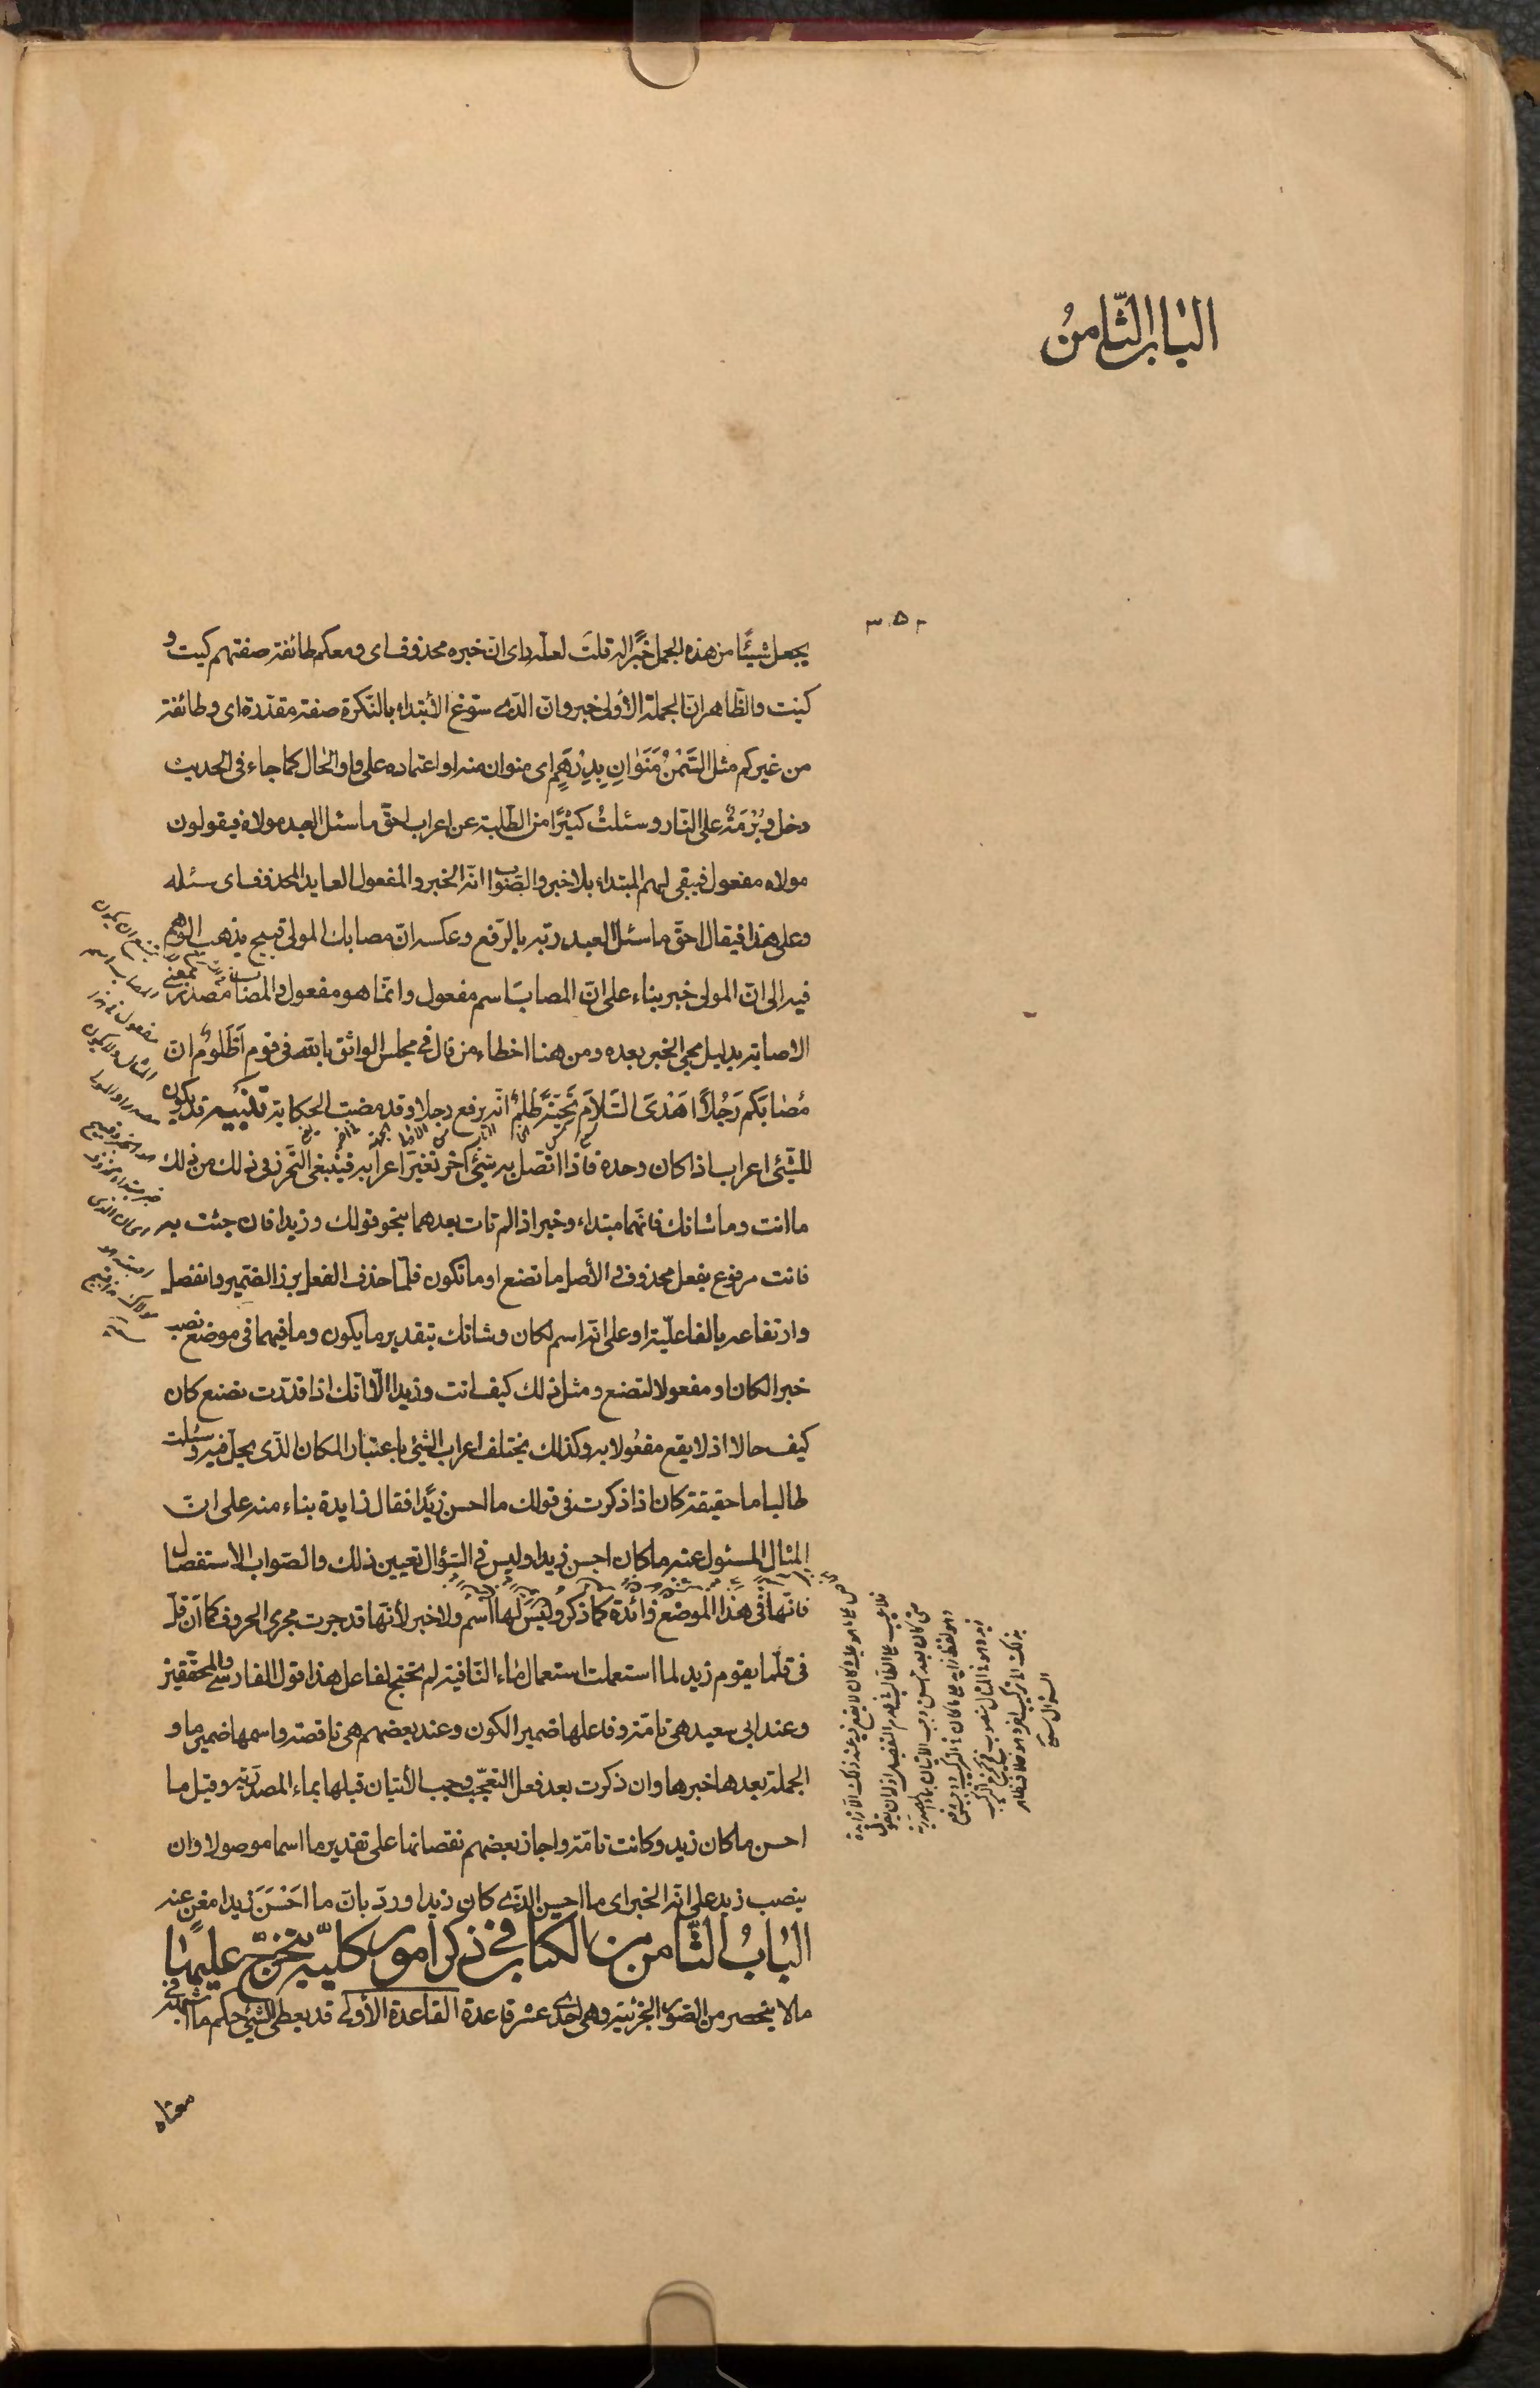 الباب الثّامنُ
٣٥٣
يجعل شيئًا من هذه الجمل خبرًا له قلتَ لعله راى ان خبره محذوف اى ومعكم طائفة صفتهم كيت و
كيت والظّاهر ان الجملة الأولى خبر وان الذى سوّغ الأبتداء بالنّكرة صفة مقدّرة اى وطائفة
من غيركم مثل السَّمْنُ مَنَوٰانِ بِدِرْهَمٍ اى منوان منه او اعتماده على واو الحال كما جاء فى الحديث
دخل وبُرْمَةٌ على النّار وسئلتُ كثيرًا من الطّلبة عن اعراب احقّ ما سئل العبد مولاه فيقولون
مولاه مفعول فيبقى لهم المبتداء بلا خبر والصّواب انّه الخبر والمفعول العايد المحذوف اى سئله
وعلى هذا فيقال احقّ ما سئل العبد ربّه بالرّفع وعكسه انّ مصابك المولى قبيح يذهب الوهم
فيه الى انّ المولى خبر بناء على انّ المصاب اسم مفعول وانّما هو مفعول والمصاب مصدر بمعنى
الاصابة بدليل مجئ الخبر بعده ومن هنا اخطاء من قال فى مجلس الواثق بالله فى قوم أَظَلُومُ انّ
مُصٰابَكُم رَجُلًا اَهْدَى السَّلاٰمَ تَحِيَّةً ظُلْمٌ انّه برفع رجلا وقد مضت الحكاية تنبيه قد يكون
للشّيئى اعراب اذا كان وحده فاذا اتّصل به شيئى آخر تغيّر اعرابه فينبغى التّحرز فى ذلك من ذلك
ما انت وما شانك فانّهما مبتداء وخبر اذا لم تات بعدهما بنحو قولك وزيدا فان جئت به
فانت مرفوع بفعل محذوف والأصل ما تصنع او ما تكون فلمّا حذف الفعل برز الضّمير وانفصل
وارتفاعه بالفاعليّة او على انّه اسم لكان وشانك بتقدير ما يكون وما فيهما فى موضع نصب
خبرا لكان او مفعولا لتصنع ومثل ذلك كيف انت وزيدا الّا انّك اذا قدّرت تصنع كان
كيف حالا اذ لا يقع مفعُولا به وكذلك يختلف اعراب الشيئ باعتبار المكان الذّى يحلّ فيه وسئلت
طالبا ما حقيقة كان اذا ذكرت فى قولك ما احسن زيدًا فقال زايدة بناء منه على انّ
المثال المسئول عنه ما كان احسن زيدا وليس فى السّؤال تعيين ذلك والصّواب الاستفصال
فانّها فى هذا الموضع زائدة كما ذكر وليس لها اسم ولا خبر لأنّها قد جرت مجرى الحروف كما انّ قلّ
فى قلّما يقوم زيد لما استعملت استعمال مٰاء النّافية لم تحتج لفاعل هذا قول الفارسى والمحقّقين
وعند ابى سعيد هى تامّة وفاعلها ضمير الكون وعند بعضهم هى ناقصة واسمها ضمير ما و
الجملة بعدها خبرها وان ذكرت بعد فعل التعجّب وجب الأتيان قبلها بماء المصدريّة وقيل ما
احسن ما كان زيد وكانت تامّة واجاز بعضهم نقصانها على تقدير ما اسما موصولا وان
ينصب زيد على انّه الخبر اى ما احسن الذّى كان زيدا وردّ بانّ ما احَسَنَ زيدا مغن عنه
البٰابُ الثّامن من الكتاب فى ذكر امور كليّة يتخرّج عليهٰا
ما لا ينحصر من الصّور الجزئيّة وهى احدى عشر قاعدة القاعدة الأولى قد يعطى الشّيئ حكم ما اشبهه فى
معناه